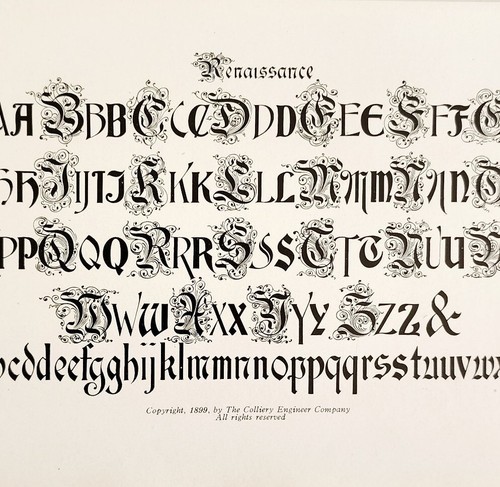 Renaissance.
AA BBB CCC DDD EEE FFF G
HH IIJIJ KKK LLL MMM NNN O
PPP QQQ RRR SSS TTT UUU V
WWW XXX YYY ZZZ &
bcddeefgghijjklmmnnoppqqrssstuuvwx
Copyright, 1899, by The Colliery Engineer Company
All rights reserved